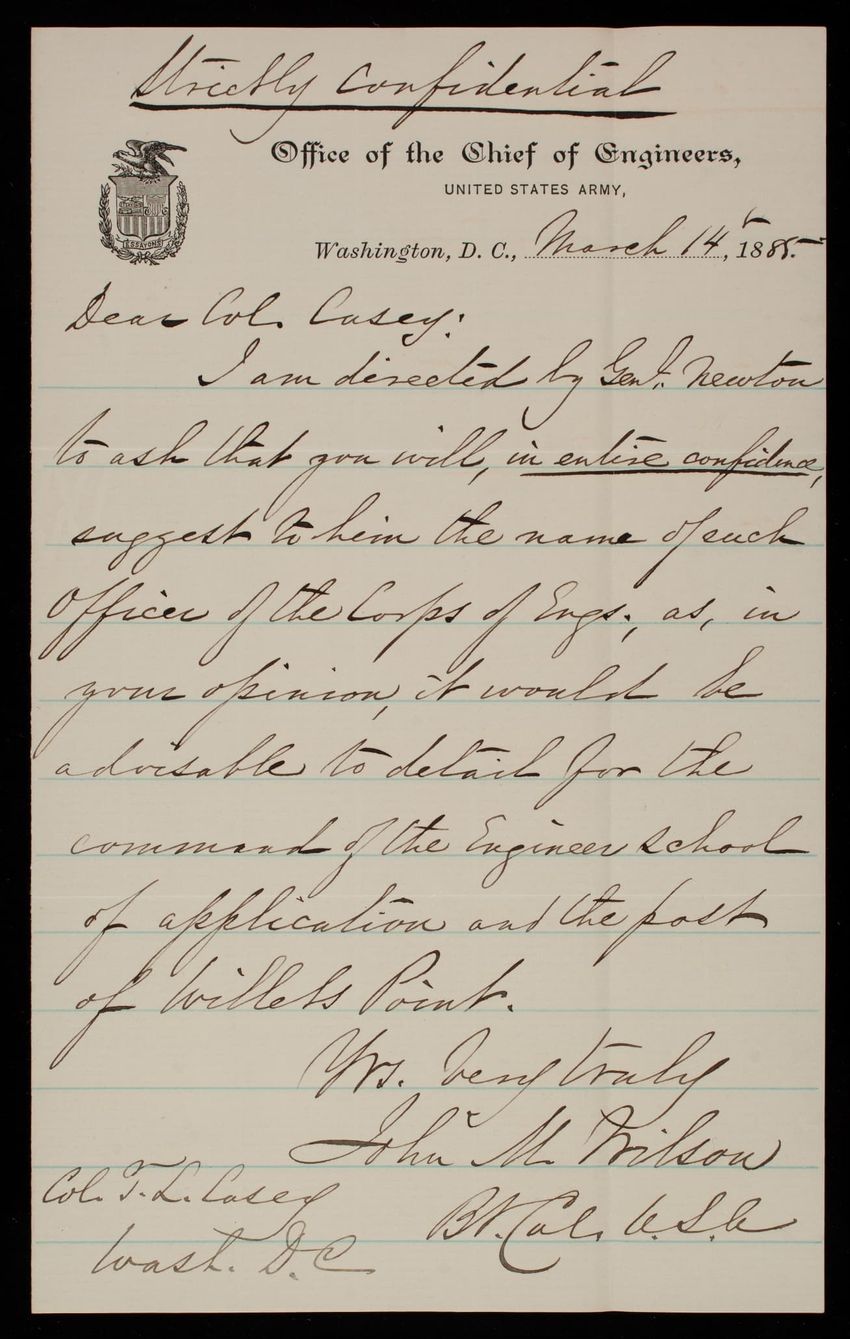 Strictly Confidential
Office of the Chief of Engineers,
UNITED STATES ARMY,
ESSAYONS
Washington, D. C., March 14, 1885.
Dear Col. Casey:
I am directed by Genl. Newton
to ask that you will, in entire confidence,
suggest to him the name of such
Officer of the Corps of Engs., as, in
your opinion, it would be
advisable to detail for the
command of the Engineer School
of application and the post
of Willets Point.
Yrs. very truly
John M. Wilson
Bt. Col. U.S.A
Col. T. L. Casey
Wash. D.C